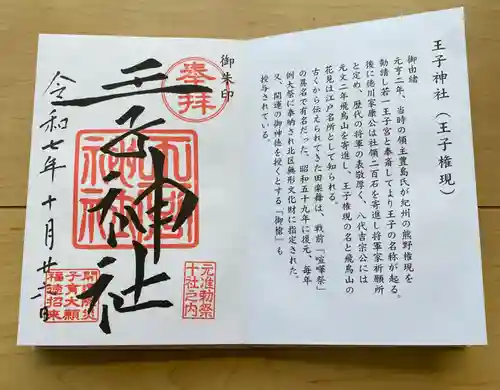 王子神社（王子権現）
御由緒
元亨二年、当時の領主豊島氏が紀州の熊野権現を
勧請し若一王子宮と奉斎してより王子の名称が起る。
後に徳川家康公は社領二百石を寄進し将軍家祈願所
と定め、歴代の将軍の表敬厚く、八代吉宗公には
元文二年飛鳥山を寄進し、王子権現の名と飛鳥山の
花見は江戸名所として知られる。
古くから伝えられてきた田楽舞は、戦前「喧嘩祭」
の異名で有名だった。昭和五十九年に復元、毎年
例大祭に奉納され北区無形文化財に指定された。
又、開運の御神徳を授くとする「御槍」も
授与されている。
御朱印
奉拝
王子神社
王子神社
元准勅祭
十社之内
令和七年十月廿二日
開運除災
子育大願
福徳招来